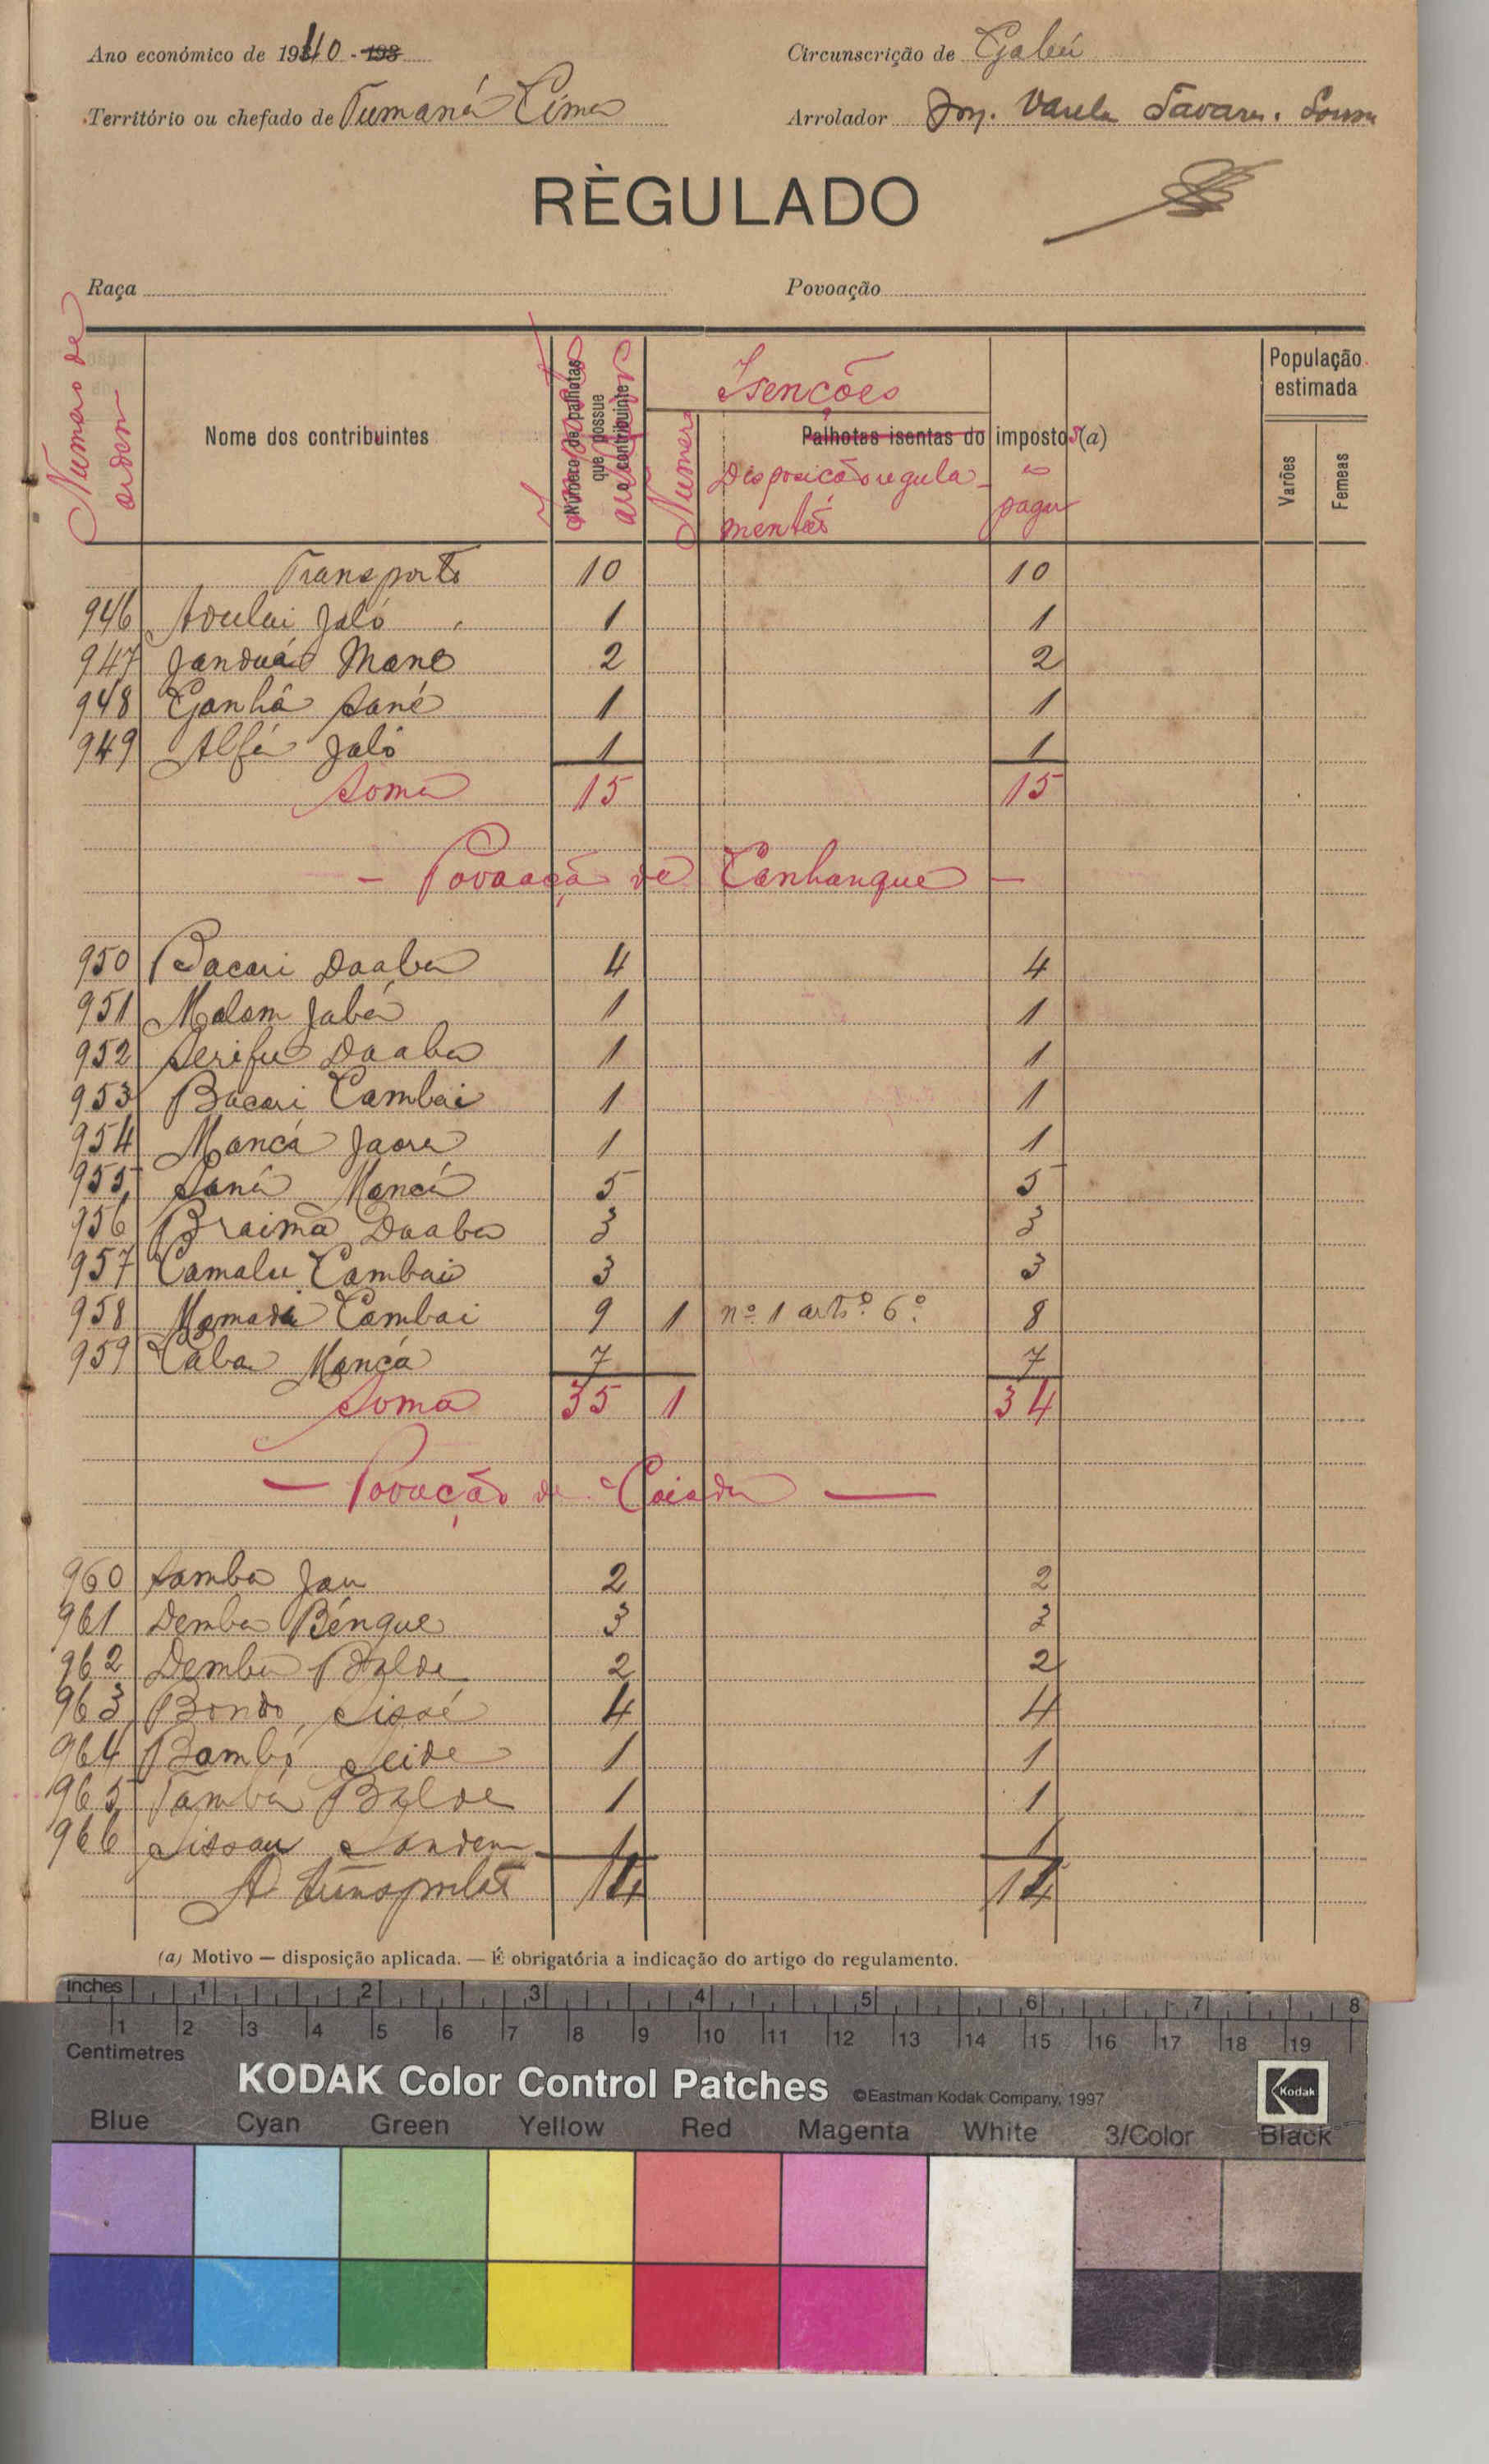 Ano económico de 1940 - 193
Circunscrição de Gabú
Território ou chefado de Tumaná Cima
Arrolador Varela Tavares
RÈGULADO
Raça
Povoação
Numero de ordem
Nome dos contribuintes
Número de palhotas que possue o contribuinte
Impostos
Isenções
Numero
Palhotas isentas do impostos (a)
Disposição regula-
mentar
a
pagar
População estimada
Varões
Femeas
Transporte 10 10
946 Aoulai Jaló 1 1
947 Janduá Mane 2 2
948 Ganhá Sané 1 1
949 Alfá Jaló 1 1
Soma 15 15
- Povoação de Canhanque -
950 Bacari Daaba 4 4
951 Malam Jabá 1 1
952 Serifu Daaba 1 1
953 Bacari Cambai 1 1
954 Mancá Jaora 1 1
955 Saná Mancá 5 5
956 Braima Daaba 3 3
957 Camalu Cambai 3 3
958 Mamadi Cambai 9 1 nº 1 artº 6º 8
959 Caba Mancá 7 7
Soma 35 1 34
— Povoação de —
960 Samba Jau 2 2
961 Demba Bénque 3 3
962 Demba Balde 2 2
963 Bondo Sissé 4 4
964 Bambó Seide 1 1
965 Samba Balde 1 1
966 Sissau 1 1
A transportar 14 14
(a) Motivo — disposição aplicada. — É obrigatória a indicação do artigo do regulamento.
Inches 1 2 3 4 5 6 7 8
1 2 3 4 5 6 7 8 9 10 11 12 13 14 15 16 17 18 19
Centimetres
KODAK Color Control Patches ©Eastman Kodak Company, 1997
Kodak
Blue Cyan Green Yellow Red Magenta White 3/Color Black